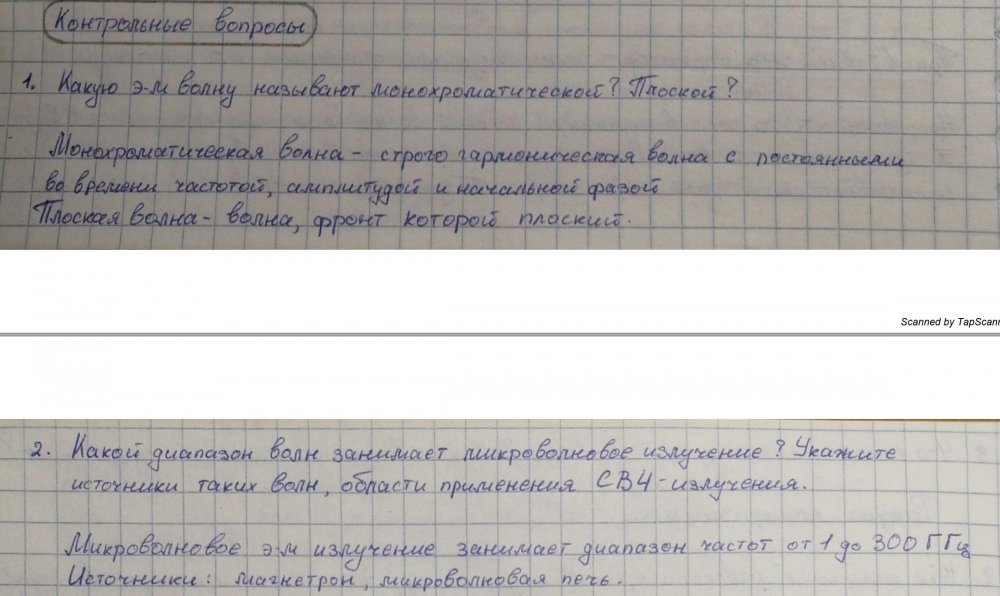 Контрольные вопросы
1. Какую э-м волну называют монохроматической? Плоской?
Монохроматическая волна - строго гармоническая волна с постоянными
во времени частотой, амплитудой и начальной фазой
Плоская волна - волна, фронт которой плоский.
Scanned by TapScann
2. Какой диапазон волн занимает микроволновое излучение? Укажите
источники таких волн, области применения СВЧ-излучения.
Микроволновое э-м излучение занимает диапазон частот от 1 до 300 ГГц
Источники: магнетрон, микроволновая печь.